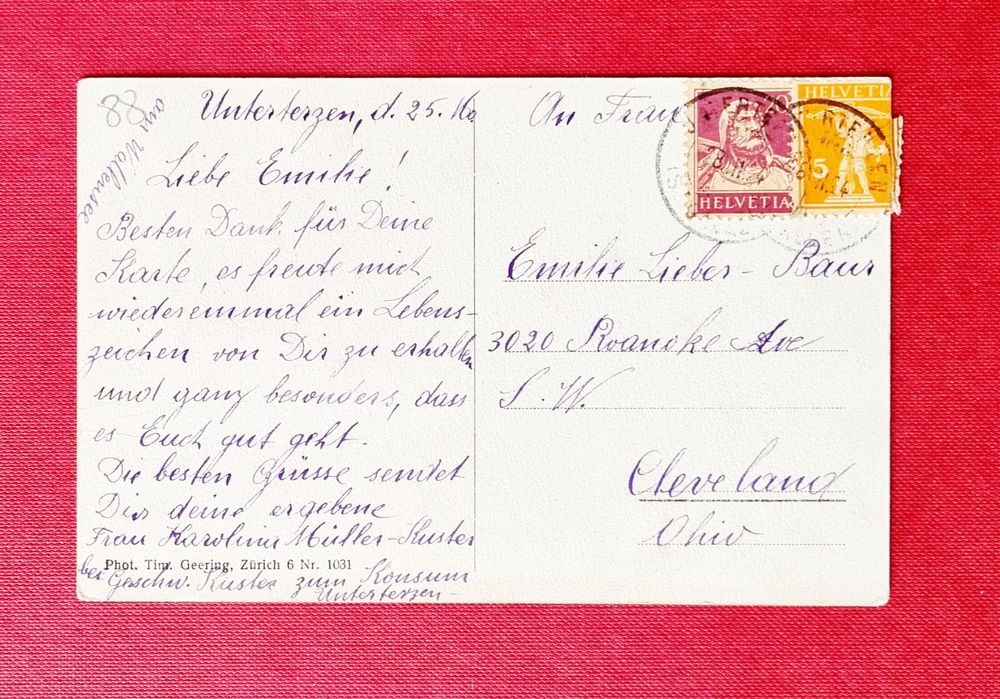 88
am Wallensee
Unterterzen, d. 25.
Liebe Emilie!
Besten Dank für Deine
Karte, es freute mich
wiedereinmal ein Lebens-
zeichen von Dir zu erhalten
und ganz besonders, dass
es Euch gut geht.
Die besten Grüsse sendet
Dir deine ergebene
Frau Karolina Müller-Kuster
bei Geschw. Kuster zum Konsum
Unterterzen-
Phot. Tim. Geering, Zürich 6 Nr. 1031
An Frau
20
HELVETIA
HELVETIA
5
Emilie Lieber-Baur
3020 Roanoke Ave
S. W.
Cleveland
Ohio